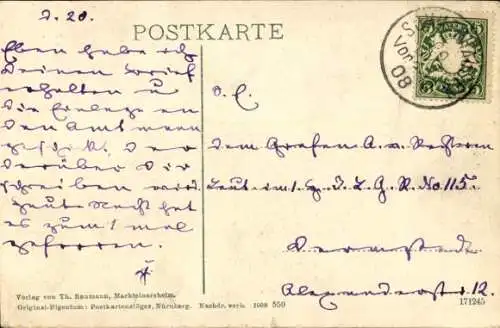 2. 20.
POSTKARTE
Eben habe ich
Deinen Brief
erhalten u
die Einlage an
den Amtmann
geschickt. Der
darüber Dir
schreiben wird.
Heute Nacht hat
es zum 1 mal
gefroren.
S. E.
dem Grafen A. v. Rechteren
Leut. im 1. g. J. L. G. R. No 115.
Darmstadt
Alexanderstr 12.
08
Verlag von Th. Baumann, Marktleuersheim.
Original-Eigentum: Postkartenstöger, Nürnberg. Nachdr. verb. 1908 550
171245